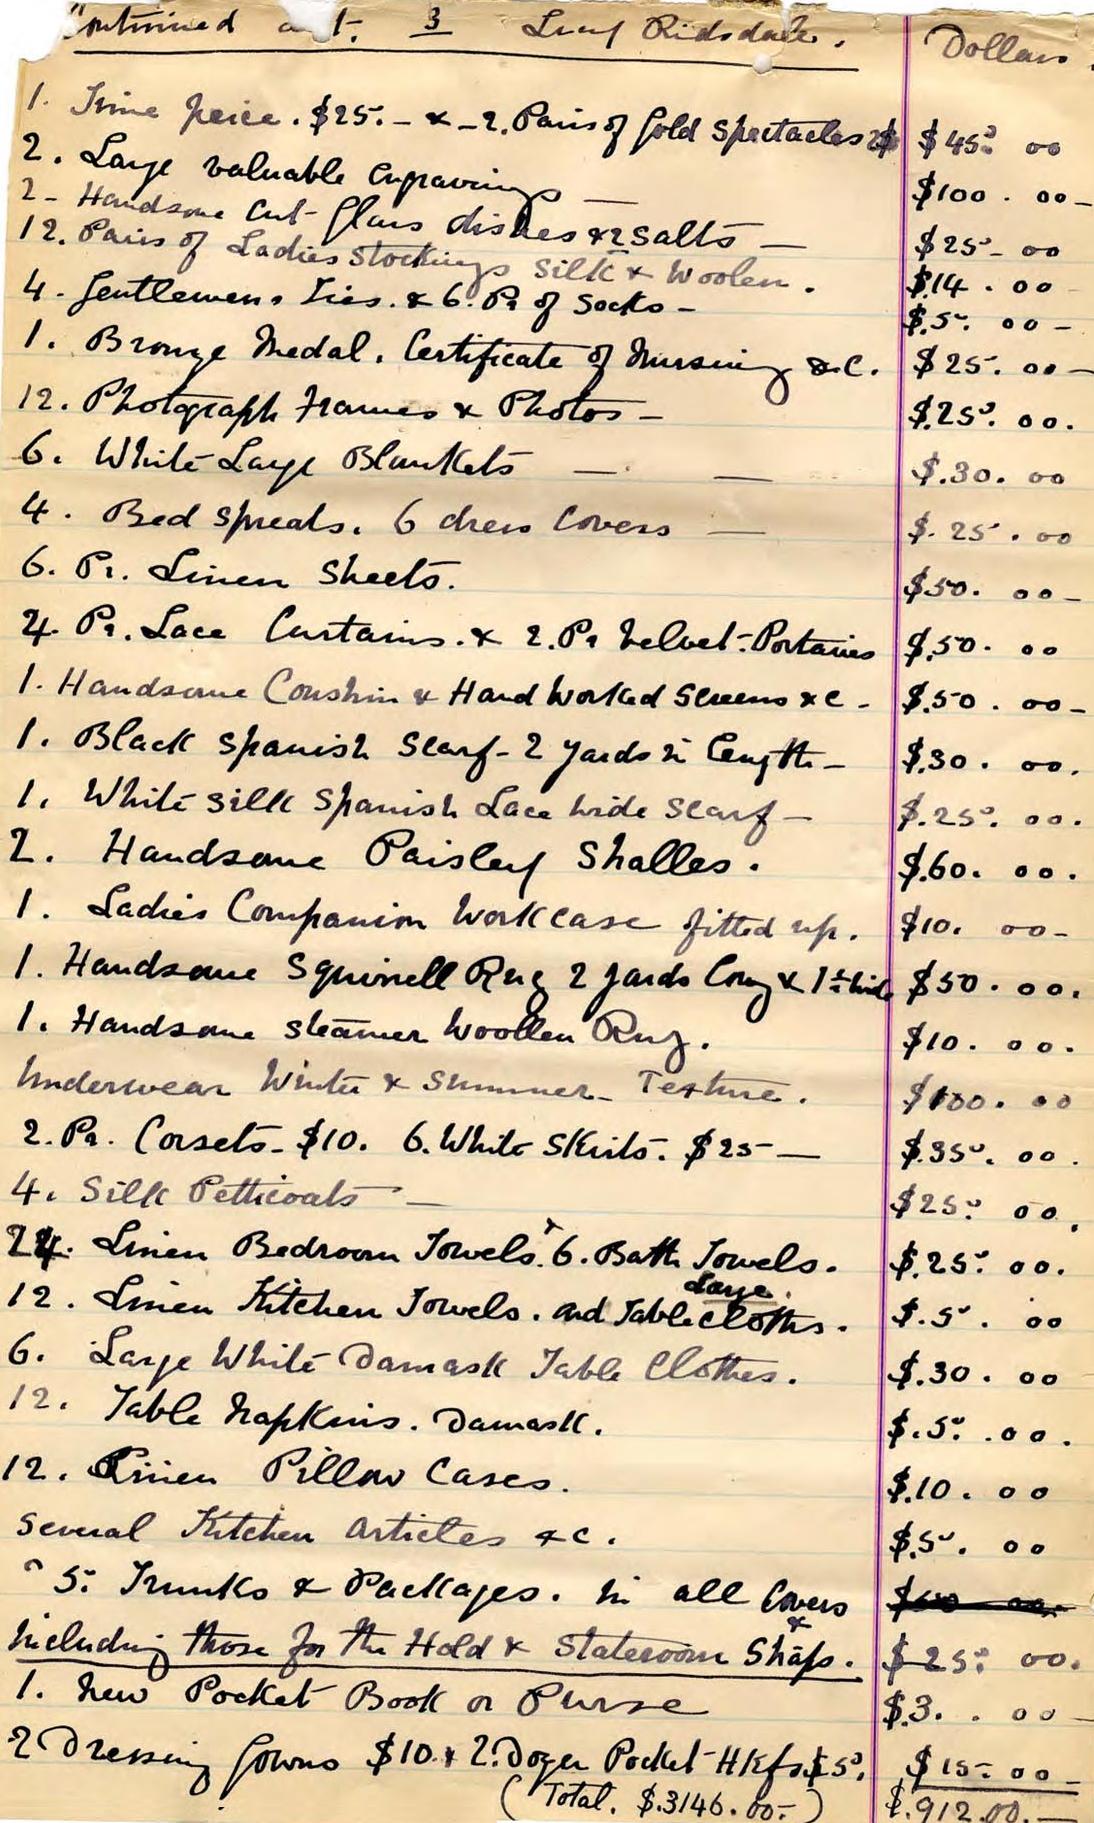 Continued 3 Lucy Ridsdale. Dollars.
1. Time peice. $25.- & - 2. Pairs of Gold Spectacles $45. 00
2. Large valuable Engravings — $100. 00-
2- Handsome Cut-Glass dishes & 2 Salts — $25- 00
12. Pairs of Ladies Stockings Silk & Woolen. $.14. 00
4. Gentlemens Ties. & 6. Pr of Socks - $.5. 00-
1. Bronze Medal. Certificate of Nursing &.C. $25. 00-
12. Photgraph Frames & Photos - $.25. 00.
6. White Large Blankets — — $.30. 00
4. Bed Spreads. 6 dress Covers — $.25. 00
6. Pr. Linen Sheets. $50. 00-
4. Pr. Lace Curtains. & 2. Pr Velvet-Portaries $.50. 00
1. Handsome Coushin & Hand Worked Screens &c - $.50. 00-
1. Black Spanish Scarf- 2 yards in length - $.30. 00.
1. White Silk Spanish Lace wide Scarf - $.25. 00.
2. Handsome Paisley Shalles. $.60. 00.
1. Ladies Companion Workcase fitted up. $10. 00-
1. Handsome Squirrell Rug 2 yards long & 1½ wide $50. 00.
1. Handsome Steamer Woollen Rug. $10. 00.
Underwear Winter & Summer- Texture. $100. 00
2. Pr. Corsets- $10. 6. White Skirts. $25 — $.35. 00.
4. Silk Petticoats - $25. 00.
24. Linen Bedroom Towels. 6. Bath Towels. $.25. 00.
12. Linen Kitchen Towels. and Large Table Cloths. $.5. 00
6. Large White Damask Table Clothes. $.30. 00
12. Table Napkins. Damask. $.5. 00.
12. Linen Pillow Cases. $.10. 00
Several Kitchen Articles &c. $.5. 00
5. Trunks & Packages. in all Covers &
including those for the Hold & Stateroom Shaps. $25. 00.
1. New Pocket Book or Purse $.3. 00-
2 Dressing Gowns $10 & 2. Dozen Pocket-Hkfs $5. $15. 00-
(Total. $.3146.00.-) $.912.00.-